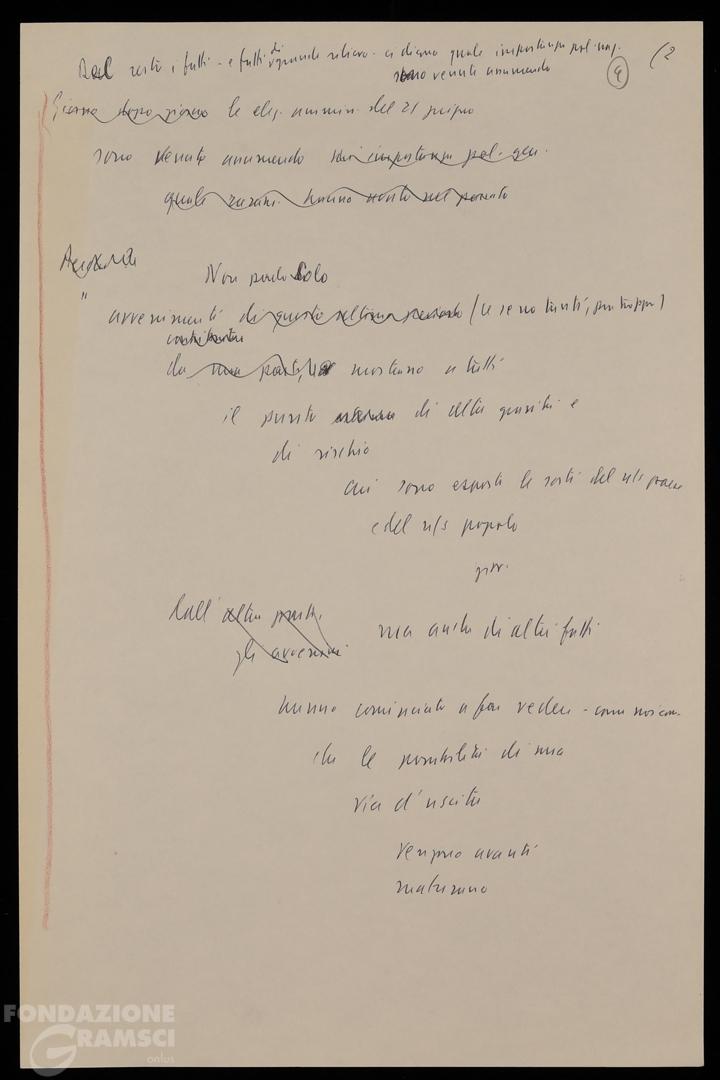 Del resto, i fatti - e fatti di grande rilievo - ci dicono quale importanza pol. naz.
sono venute assumendo
4
(2
Giorno dopo giorno le elez. ammin. del 21 giugno
sono venute assumendo importanza pol. gen.
quale hanno avuto nel passato
Non solo
"
avvenimenti di questo ultimo periodo (ce se no tanti, purtroppo)
da una parte, mostrano a tutti
il punto di alta gravità e
di rischio
cui sono esposte le sorti del n/s paese
e del n/s popolo
Dall'altra parte,
gli avvenim
ma anche di altri fatti
hanno cominciato a far vedere -
che le possibilità di una
via d'uscita
vengono avanti
maturano
FONDAZIONE
GRAMSCI
onlus